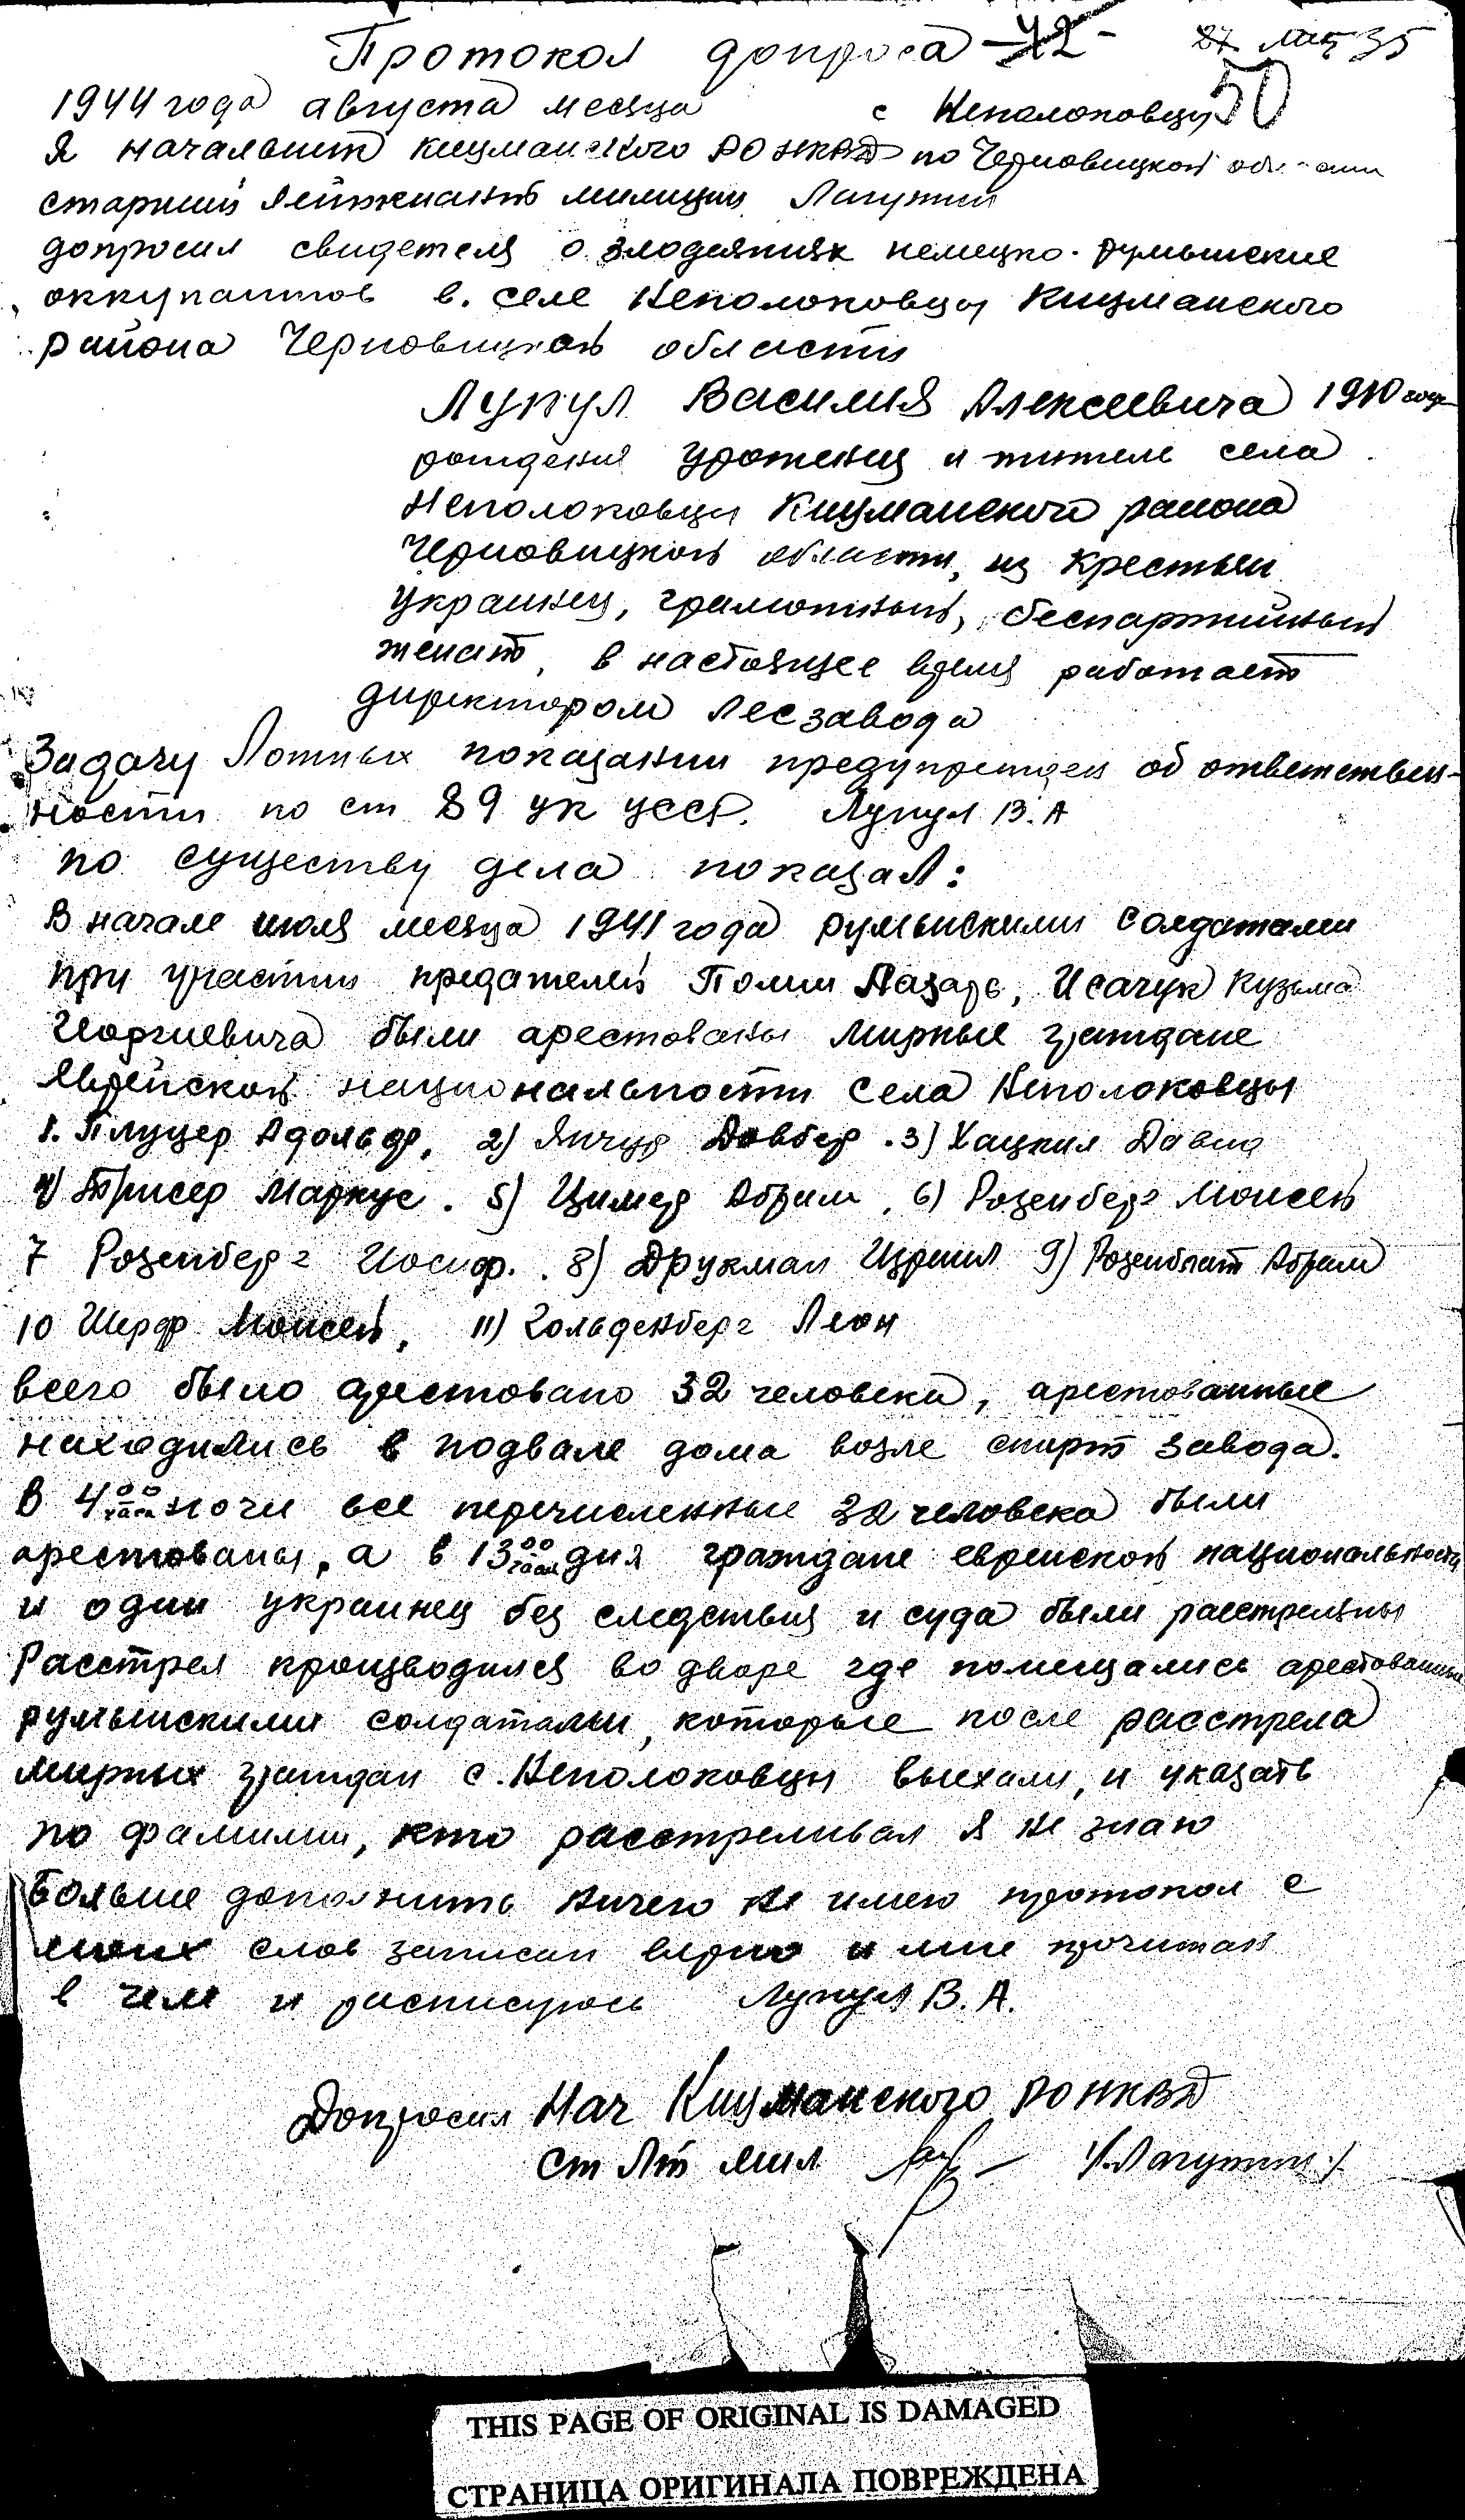 Протокол допроса -42- 35
50
1944 года августа месяца с Неполоковцы
Я начальник Кицманского РО НКВД по Черновицкой области
старший лейтенант милиции Лагутин
допросил свидетеля о злодеяниях немецко-румынские
оккупантов в. селе Неполоковцы Кицманского
района Черновицкой области
Лупул Василия Алексеевича 1910 года
рождения уроженец и житель села
Неполоковцы Кицманского района
Черновицкой области, из крестьян
украинец, грамотный, беспартийный
женат, в настоящее время работает
директором лесзавода
За дачу ложных показании предупрежден об ответствен-
ности по ст 89 УК УССР. Лупул В.А
по существу дела показал:
В начале июля месяца 1941 года румынскими солдатами
при участии предателей Помпи Лазарь, Исачук Кузьма
Георгиевича были арестованы мирные граждане
Еврейской национальности села Неполоковцы
1. Плуцер Адольф, 2) Янчур Довбер. 3) Хацкил Давид
4) Трисер Маркус. 5) Цимер Абрам, 6) Розенберг Моисей
7 Розенберг Иосиф. 8) Друкман Израил 9) Розенблат Абрам
10 Шерф Моисей, 11) Гольденберг Леон
всего было арестовано 32 человека, арестованные
находились в подвале дома возле спирт завода.
В 4 00 часа ночи все перечисленные 32 человека были
арестованы, а в 13 00 часов дня граждане еврейской национальности
и один украинец без следствия и суда были расстреляны
Расстрел производился во дворе где помещались арестованные
румынскими солдатами, которые после расстрела
мирных граждан с. Неполоковцы выехали, и указать
по фамилии, кто расстреливал я не знаю
Больше дополнить ничего не имею протокол с
моих слов записан верно и мне прочитан
в чем и расписуюсь Лупул В.А.
Допросил Нач Кицманского РО НКВД
ст Лт мил /Лагутин/
THIS PAGE OF ORIGINAL IS DAMAGED
СТРАНИЦА ОРИГИНАЛА ПОВРЕЖДЕНА